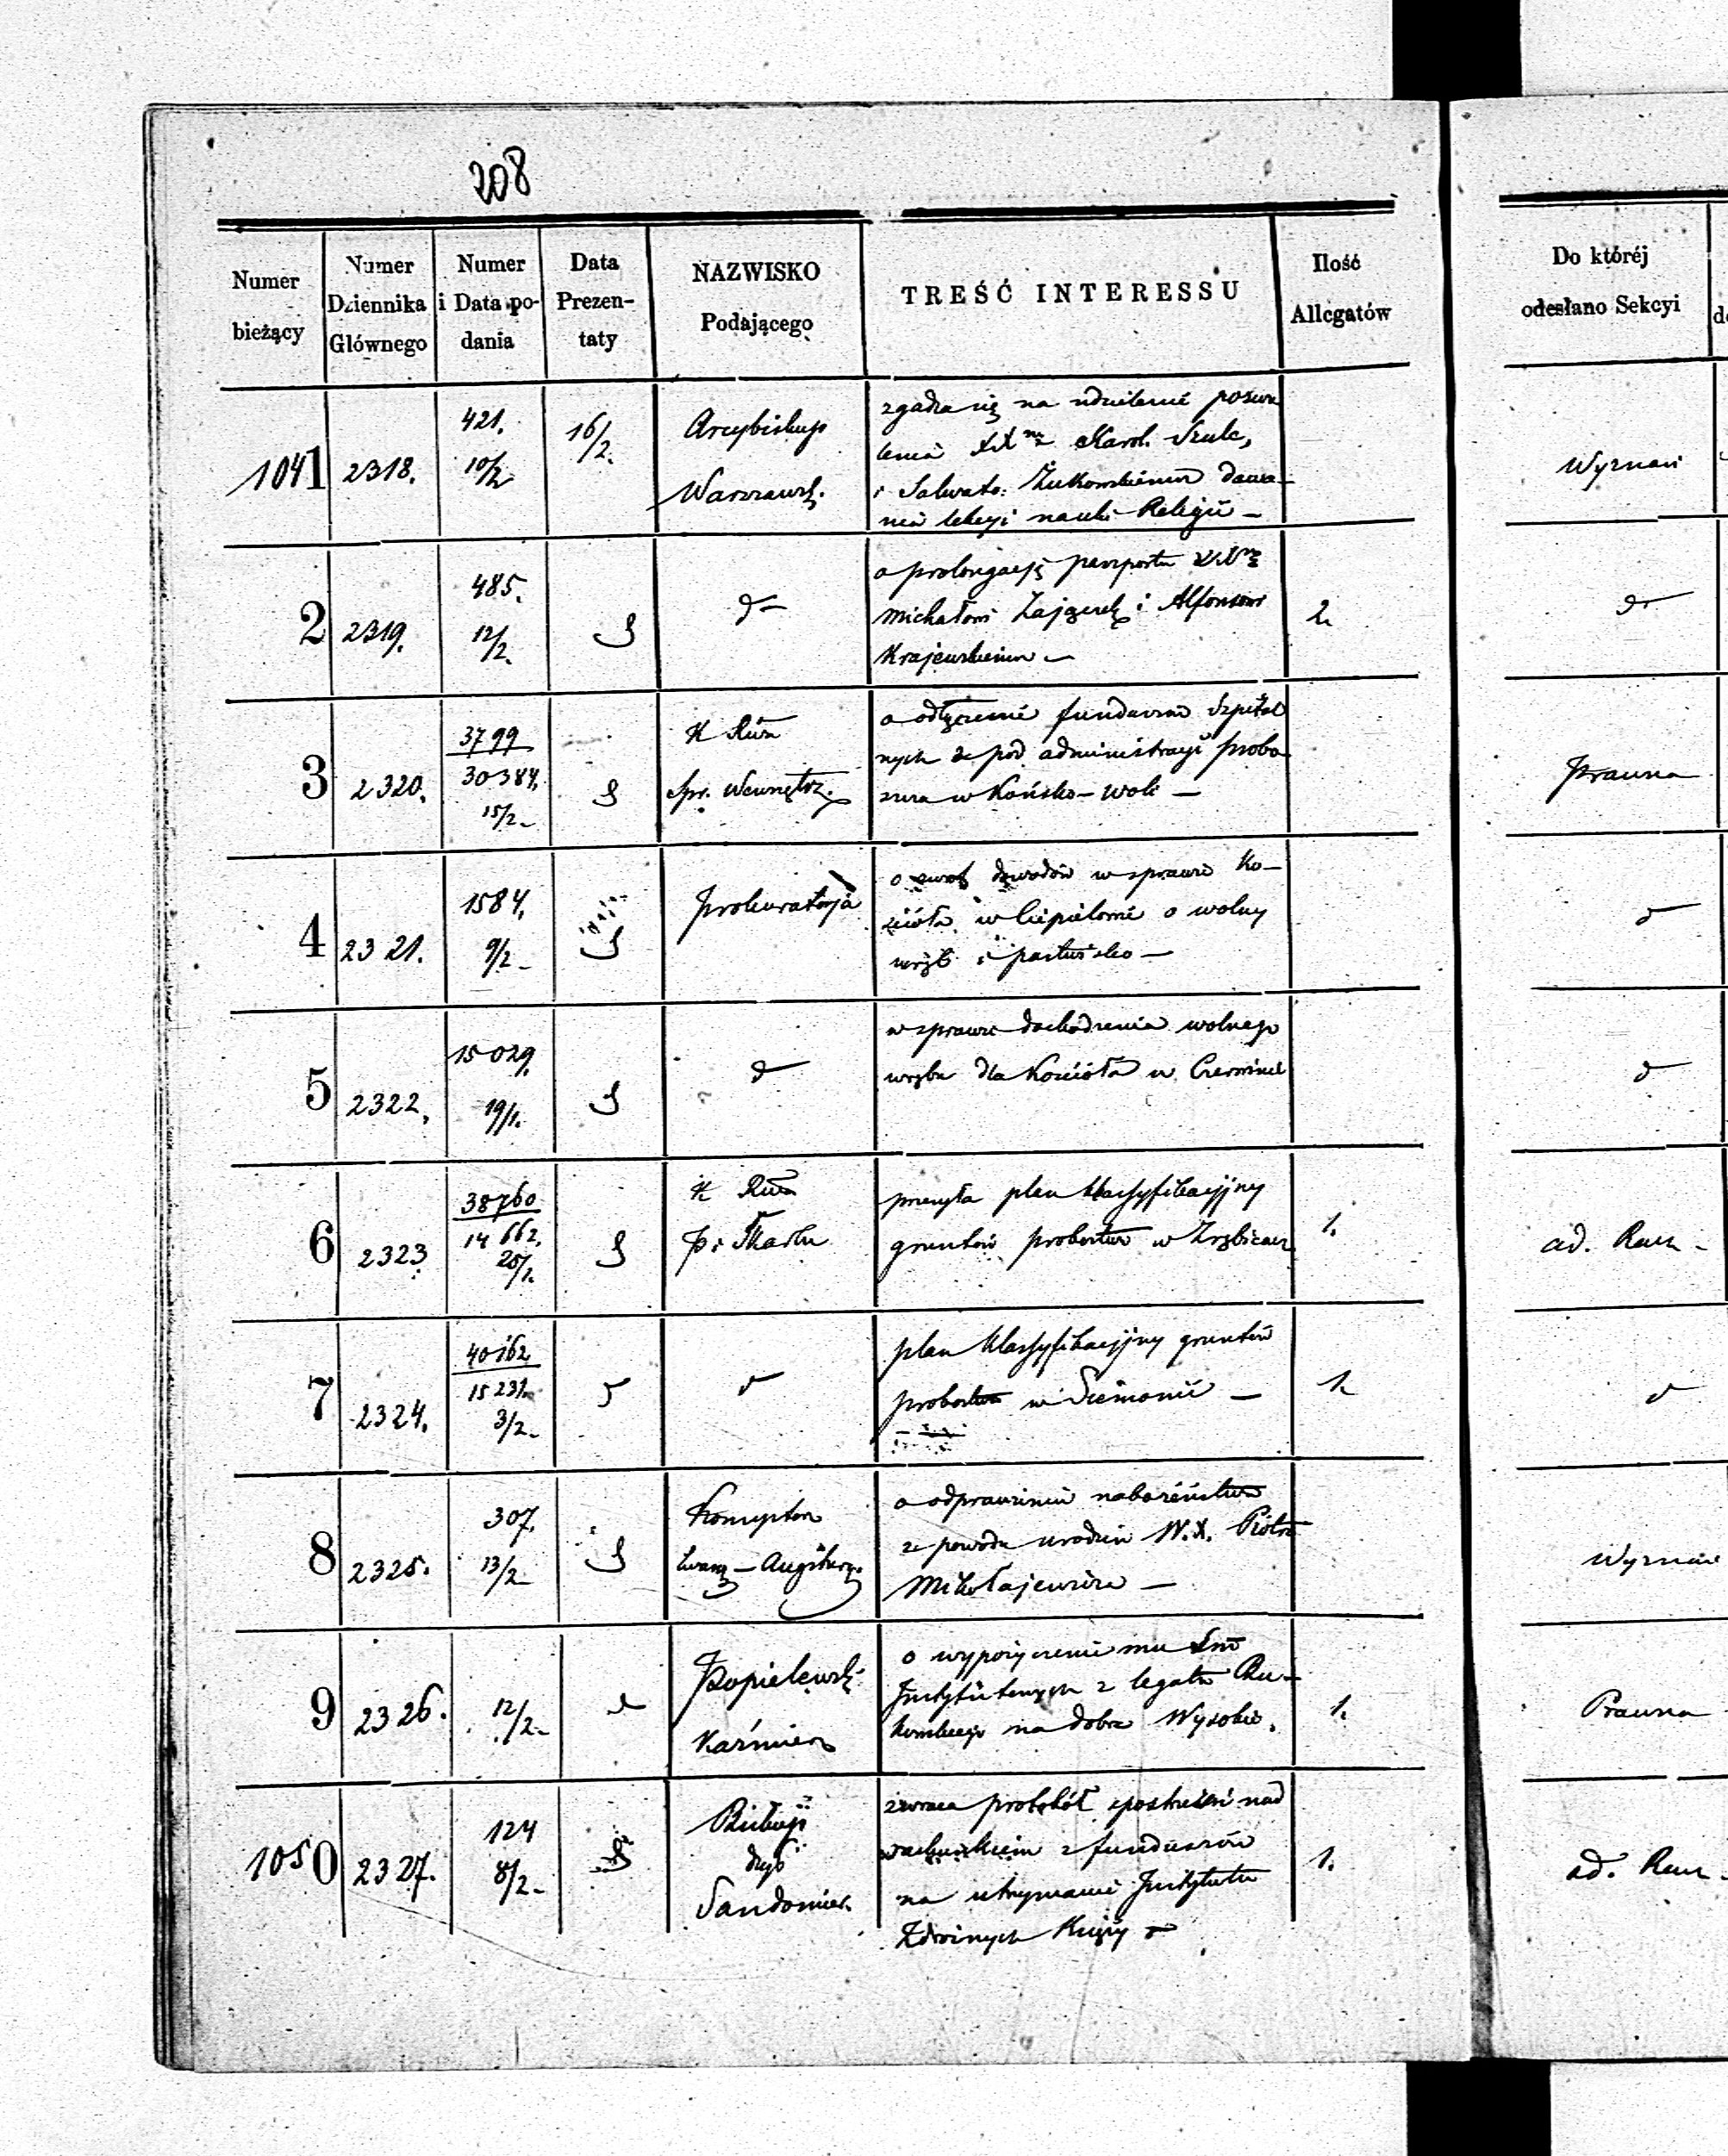 208
Numer bieżący
Numer Dziennika Głównego
Numer i Data podania
Data Prezentaty
NAZWISKO Podającego
TREŚĆ INTERESSU
Ilość Allegatów
Do któréj odesłano Sekcyi
1041 2318. 421. 10/2 16/2.
Arcybiskup
Warszawsk.
zgadza się na udzielenie pozwo
lenia XX Karol. Szulc,
i Salwato: Żukowskiemu dawa-
nia lekcyi nauki Religii –
Wyznań
2 2319. 485. 12/2.
d–
o prolongacyę paszportu
Michałowi Zajączk i Alfonsowi
Krajewskiemu –
2.
d–
3 2320. 3799 30384. 15/2 –
K Rz
Spr. Wewnętrz.
o odłączenie funduszów Szpital
nych z pod administracyi probo
szcza w Końsko-Woli –
Prawna
4 2321. 1584. 9/2 –
Prokuratorja
o zwrot dowodów w sprawie Ko–
ścioła w Ciepielowie o wolny
wrąb i pastwisko –
d
5 2322. 15029. 19/1.
d
w sprawie dochodzenia wolnego
wrębu dla Kościoła w
d
6 2323 38760 14662. 20/1.
K Rz
P. i Skarbu
przesyła plan klassyfikacyjny
gruntów probostwa w
1.
ad. Rach –
7 2324. 40162 15231. 3/2 –
d
plan klassyfikacyjny gruntów
probostwa w Siemonii –
1.
d
8 2325. 307. 13/2 –
Konsystorz
Ewang – Augsburg.
o odprawieniu nabożeństwa
z powodu urodzin W.X. Piotra
Mikołajewicza –
Wyznań
9 2326. 12/2 –
Popielewsk
Kaźmierz
o wypożyczenie mu
Instytutowych z legatu Ru–
na dobra Wysokie.
1.
Prawna
1050 2327. 124 8/2 –
Biskup
dyec
Sandomier.
zwraca protokół spostrzeżeń nad
rachunkiem z funduszów
na utrzymanie Instytutu
Zdrożnych Księży
1.
ad. Rach –